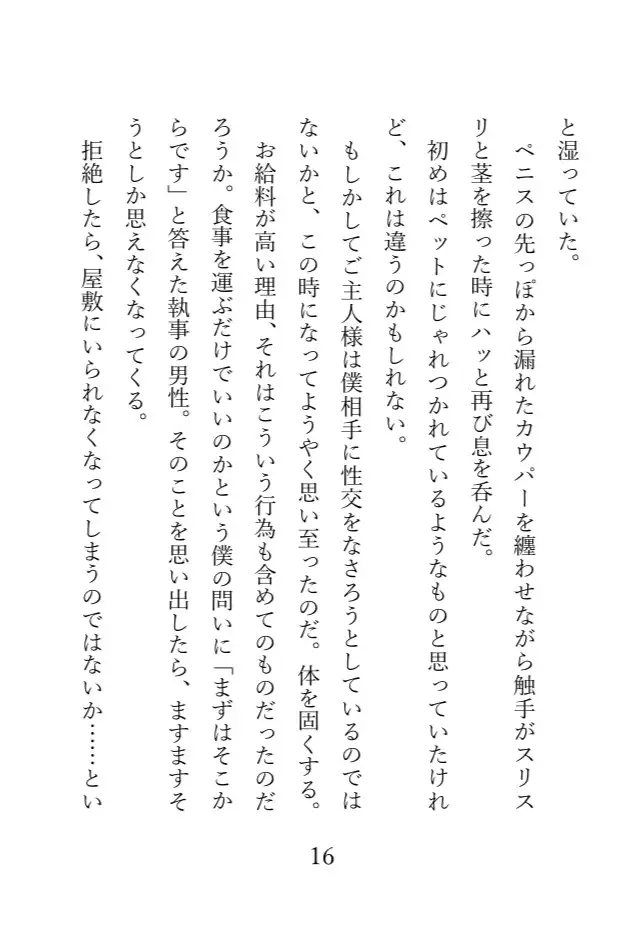 と湿っていた。
ペニスの先っぽから漏れたカウパーを纏わせながら触手がスリス
リと茎を擦った時にハッと再び息を呑んだ。
初めはペットにじゃれつかれているようなものと思っていたけれ
ど、これは違うのかもしれない。
もしかしてご主人様は僕相手に性交をなさろうとしているのでは
ないかと、この時になってようやく思い至ったのだ。体を固くする。
お給料が高い理由、それはこういう行為も含めてのものだったのだ
ろうか。食事を運ぶだけでいいのかという僕の問いに「まずはそこか
らです」と答えた執事の男性。そのことを思い出したら、ますますそ
うとしか思えなくなってくる。
拒絶したら、屋敷にいられなくなってしまうのではないか……とい
16